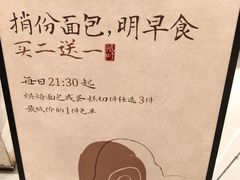 捎份面包,明早食
买二送一
每日21:30起
烘焙面包或蛋糕切件任选3件
最低价的1件免单